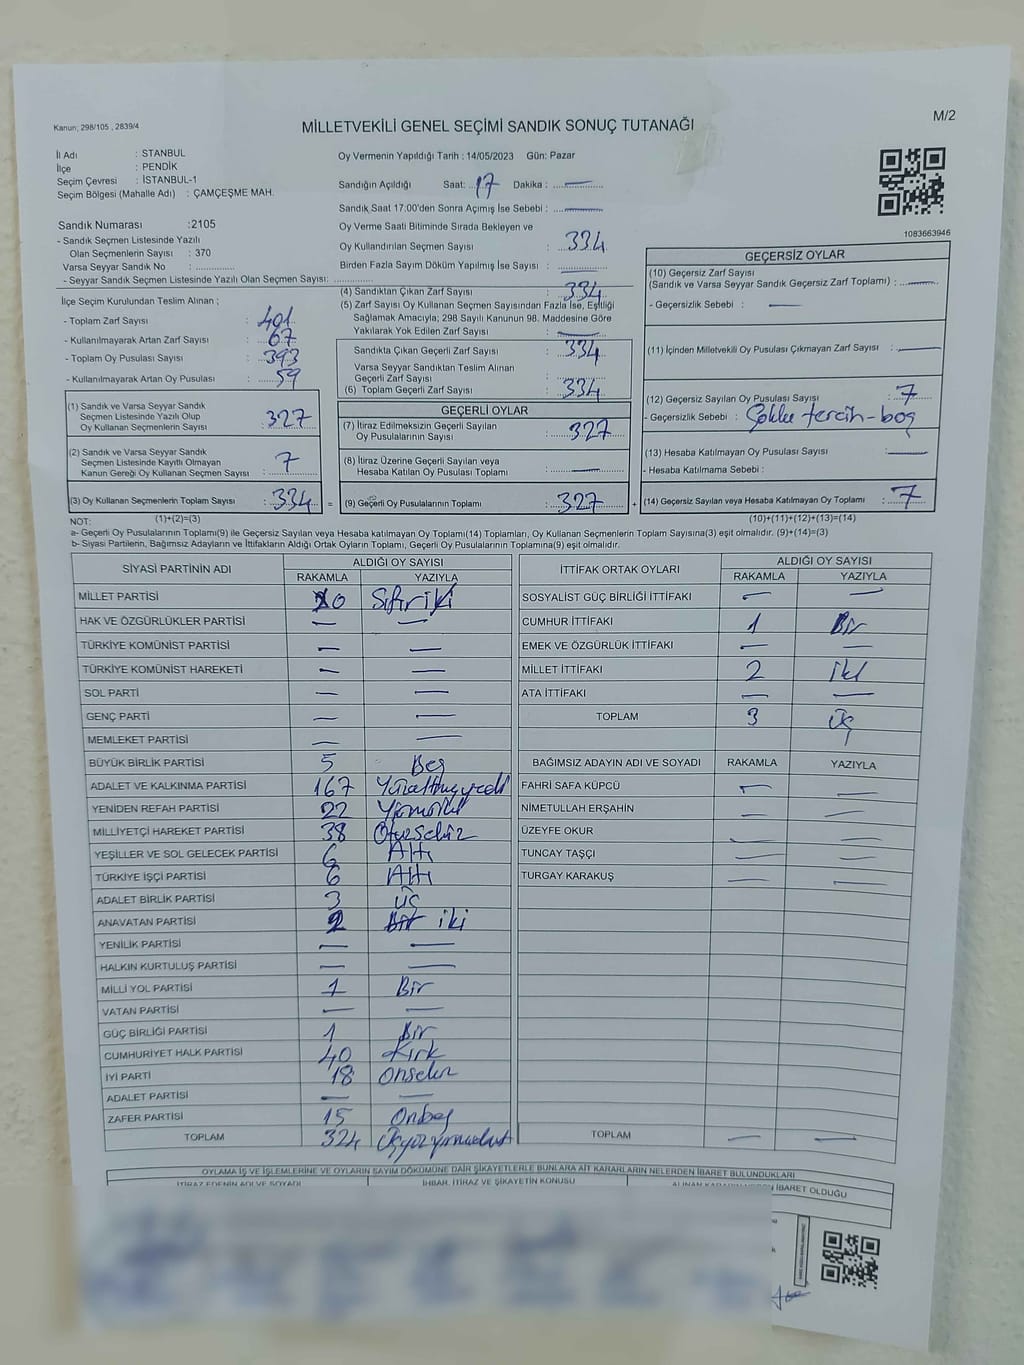 Kanun; 298/105 , 2839/4
MİLLETVEKİLİ GENEL SEÇİMİ SANDIK SONUÇ TUTANAĞI
M/2
İl Adı : STANBUL
İlçe : PENDİK
Seçim Çevresi : İSTANBUL-1
Seçim Bölgesi (Mahalle Adı) : ÇAMÇEŞME MAH.
Sandık Numarası :2105
- Sandık Seçmen Listesinde Yazılı
Olan Seçmenlerin Sayısı : 370
Varsa Seyyar Sandık No :
- Seyyar Sandık Seçmen Listesinde Yazılı Olan Seçmen Sayısı:
İlçe Seçim Kurulundan Teslim Alınan ;
- Toplam Zarf Sayısı : 401
- Kullanılmayarak Artan Zarf Sayısı : 67
- Toplam Oy Pusulası Sayısı : 393
- Kullanılmayarak Artan Oy Pusulası : 59
(1) Sandık ve Varsa Seyyar Sandık
Seçmen Listesinde Yazılı Olup
Oy Kullanan Seçmenlerin Sayısı : 327
(2) Sandık ve Varsa Seyyar Sandık
Seçmen Listesinde Kayıtlı Olmayan
Kanun Gereği Oy Kullanan Seçmen Sayısı : 7
(3) Oy Kullanan Seçmenlerin Toplam Sayısı : 334 =
Oy Vermenin Yapıldığı Tarih : 14/05/2023 Gün: Pazar
Sandığın Açıldığı Saat: 17 Dakika : —
Sandık Saat 17:00'den Sonra Açımış İse Sebebi : —
Oy Verme Saati Bitiminde Sırada Bekleyen ve
Oy Kullandırılan Seçmen Sayısı : 334
Birden Fazla Sayım Döküm Yapılmış İse Sayısı : —
(4) Sandıktan Çıkan Zarf Sayısı : 334
(5) Zarf Sayısı Oy Kullanan Seçmen Sayısından Fazla İse, Eşitliği
Sağlamak Amacıyla; 298 Sayılı Kanunun 98. Maddesine Göre
Yakılarak Yok Edilen Zarf Sayısı : —
Sandıkta Çıkan Geçerli Zarf Sayısı : 334
Varsa Seyyar Sandıktan Teslim Alınan
Geçerli Zarf Sayısı :
(6) Toplam Geçerli Zarf Sayısı : 334
GEÇERLİ OYLAR
(7) İtiraz Edilmeksizin Geçerli Sayılan
Oy Pusulalarının Sayısı : 327
(8) İtiraz Üzerine Geçerli Sayılan veya
Hesaba Katılan Oy Pusulası Toplamı : —
(9) Geçerli Oy Pusulalarının Toplamı : 327 +
1083663946
GEÇERSİZ OYLAR
(10) Geçersiz Zarf Sayısı
(Sandık ve Varsa Seyyar Sandık Geçersiz Zarf Toplamı) : —
- Geçersizlik Sebebi : —
(11) İçinden Milletvekili Oy Pusulası Çıkmayan Zarf Sayısı : —
(12) Geçersiz Sayılan Oy Pusulası Sayısı : 7
- Geçersizlik Sebebi : Çoklu tercih-boş
(13) Hesaba Katılmayan Oy Pusulası Sayısı : —
- Hesaba Katılmama Sebebi :
(14) Geçersiz Sayılan veya Hesaba Katılmayan Oy Toplamı : 7
NOT: (1)+(2)=(3) (10)+(11)+(12)+(13)=(14)
a- Geçerli Oy Pusulalarının Toplamı(9) ile Geçersiz Sayılan veya Hesaba katılmayan Oy Toplamı(14) Toplamları, Oy Kullanan Seçmenlerin Toplam Sayısına(3) eşit olmalıdır. (9)+(14)=(3)
b- Siyasi Partilerin, Bağımsız Adayların ve İttifakların Aldığı Ortak Oyların Toplamı, Geçerli Oy Pusulalarının Toplamına(9) eşit olmalıdır.
SİYASİ PARTİNİN ADI ALDIĞI OY SAYISI
RAKAMLA YAZIYLA
MİLLET PARTİSİ 0 Sıfır
HAK VE ÖZGÜRLÜKLER PARTİSİ — —
TÜRKİYE KOMÜNİST PARTİSİ — —
TÜRKİYE KOMÜNİST HAREKETİ — —
SOL PARTİ — —
GENÇ PARTİ — —
MEMLEKET PARTİSİ — —
BÜYÜK BİRLİK PARTİSİ 5 Beş
ADALET VE KALKINMA PARTİSİ 167
YENİDEN REFAH PARTİSİ 22
MİLLİYETÇİ HAREKET PARTİSİ 38 Otuzsekiz
YEŞİLLER VE SOL GELECEK PARTİSİ 6 Altı
TÜRKİYE İŞÇİ PARTİSİ 6 Altı
ADALET BİRLİK PARTİSİ 3 üç
ANAVATAN PARTİSİ 2 Bir iki
YENİLİK PARTİSİ — —
HALKIN KURTULUŞ PARTİSİ — —
MİLLİ YOL PARTİSİ 1 Bir
VATAN PARTİSİ — —
GÜÇ BİRLİĞİ PARTİSİ 1 Bir
CUMHURİYET HALK PARTİSİ 40 Kırk
İYİ PARTİ 18 Onsekiz
ADALET PARTİSİ — —
ZAFER PARTİSİ 15 Onbeş
TOPLAM 324
İTTİFAK ORTAK OYLARI ALDIĞI OY SAYISI
RAKAMLA YAZIYLA
SOSYALİST GÜÇ BİRLİĞİ İTTİFAKI — —
CUMHUR İTTİFAKI 1 Bir
EMEK VE ÖZGÜRLÜK İTTİFAKI — —
MİLLET İTTİFAKI 2 iki
ATA İTTİFAKI — —
TOPLAM 3 Üç
BAĞIMSIZ ADAYIN ADI VE SOYADI RAKAMLA YAZIYLA
FAHRİ SAFA KÜPCÜ — —
NİMETULLAH ERŞAHİN — —
ÜZEYFE OKUR — —
TUNCAY TAŞÇI — —
TURGAY KARAKUŞ — —
TOPLAM — —
OYLAMA İŞ VE İŞLEMLERİNE VE OYLARIN SAYIM DÖKÜMÜNE DAİR ŞİKAYETLERLE BUNLARA AİT KARARLARIN NELERDEN İBARET BULUNDUKLARI
İTİRAZ EDENİN ADI VE SOYADI İHBAR, İTİRAZ VE ŞİKAYETİN KONUSU ALINAN KARARIN NEDEN İBARET OLDUĞU